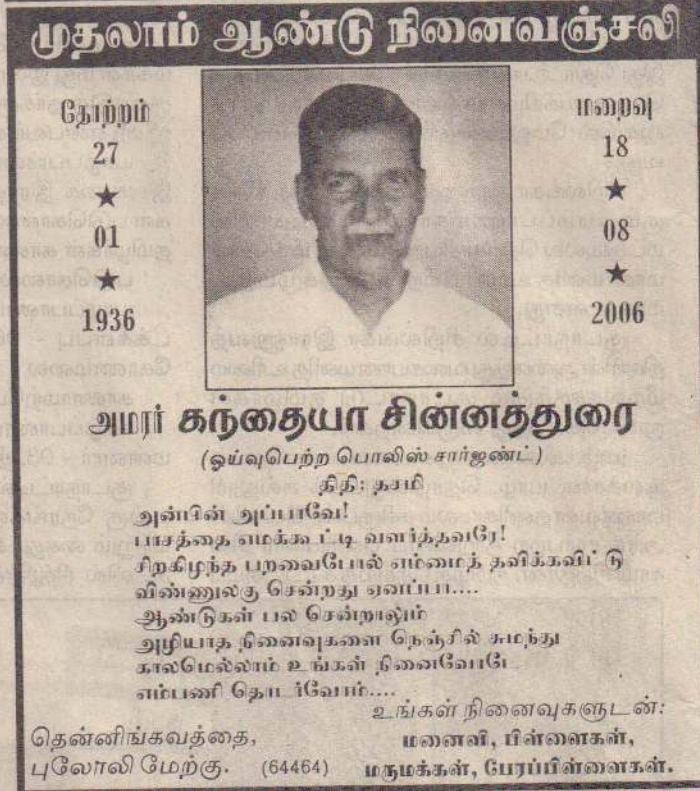 முதலாம் ஆண்டு நினைவஞ்சலி
தோற்றம்
27
★
01
★
1936
மறைவு
18
★
08
★
2006
அமரர் கந்தையா சின்னத்துரை
(ஓய்வுபெற்ற பொலிஸ் சார்ஜண்ட்)
திதி: தசமி
அன்பின் அப்பாவே!
பாசத்தை எமக்கூட்டி வளர்த்தவரே!
சிறகிழந்த பறவைபோல் எம்மைத் தவிக்கவிட்டு
விண்ணுலகு சென்றது ஏனப்பா....
ஆண்டுகள் பல சென்றாலும்
அழியாத நினைவுகளை நெஞ்சில் சுமந்து
காலமெல்லாம் உங்கள் நினைவோடே
எம்பணி தொடர்வோம்....
உங்கள் நினைவுகளுடன்:
மனைவி, பிள்ளைகள்,
மருமக்கள், பேரப்பிள்ளைகள்.
தென்னிங்கவத்தை,
புலோலி மேற்கு. (64464)